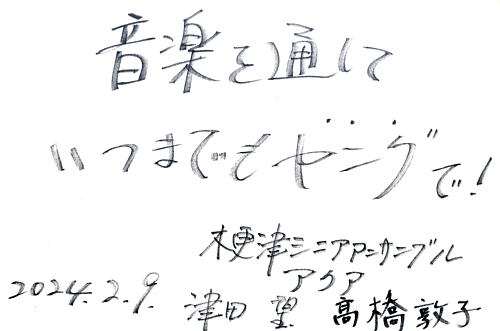 音楽を通して
いつまでもヤングで!
木更津シニアアンサンブル
アクア
2024.2.9. 津田 望 髙橋敦子